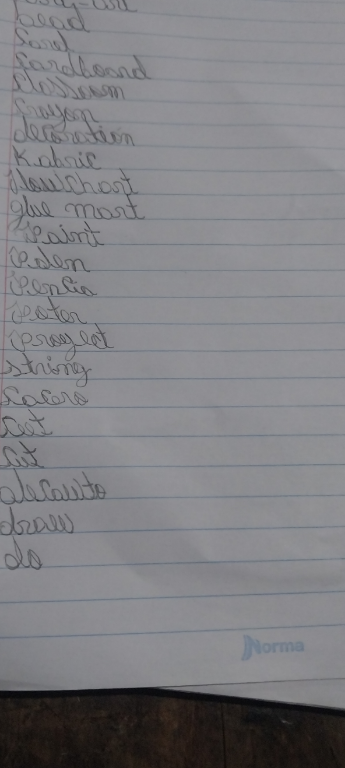 bead
Sard
Cardboard
Classoom
Crayon
decoration
Kabric
flowchart
glue mart
Paint
Peden
Pencia
Poter
Proyect
string
Cut
decauto
draw
do
Norma